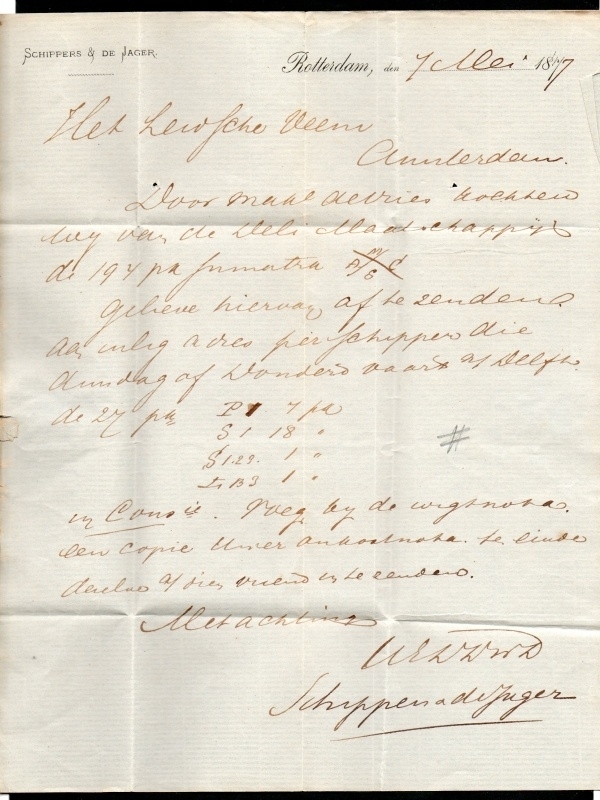 SCHIPPERS & DE JAGER.
Rotterdam, den 7 Mei 1877
Het Leidsche Veem
Amsterdam.
Door makl de Vries kochten
wy van de Deli Maatschappij
de 194 pk Sumatra
gelieve hiervan af te zenden
aan inlig adres per schipper die
dinsdag of donderd vaart a/ Delft
de 27 pk P 1 7 pk
S 1 18 "
S 1.29. 1 "
L B3 1 "
in Consie. Voeg by de wigtnota
een copie Uwer onkostnota te einde
dezelve a/ dien vriend in te zenden.
Met achting
UEDDWD
Schippers & de Jager